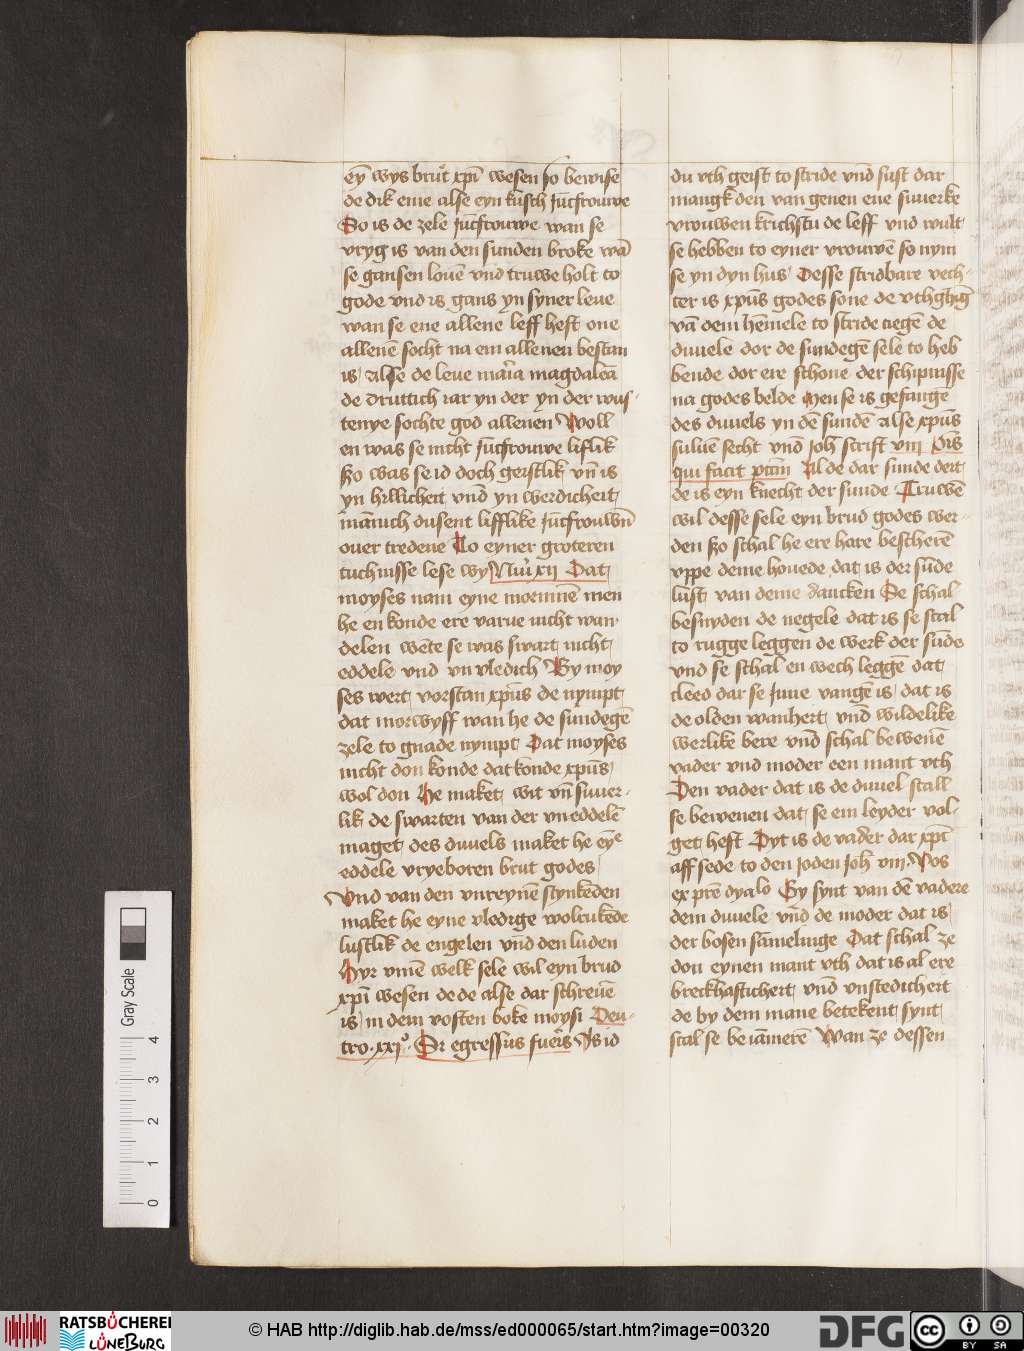 eȳ wys brut xpī wesen so bewise
de dik eme alse eyn kusch Jūcfrouwe
Do is de zele Jūcfrouwe wan se
vryg is van den sunden broke wā
se gansen louē vnd truwe holt to
gode vnd is gans yn syner leue
wan se ene allene leff heft one
allenē socht na em allenen bestan
is Alse de leue maria magdalēa
de druttich iar yn der yn der wus-
tenye sochte god allenen Woll
en was se nicht Jūcfrouwe liflik
ẞo was se id doch geistlik vn̄ is
yn hillicheit vnd yn werdicheit
mānich dusent lifflike Jūcfrouwn̄
ouer tredene To eyner groteren
tuchnisse lese wy Nūi xii Dat
moyses nam eyne morinnē men
he en konde ere varue nicht wan
delen wēte se was swart nicht
eddele vnd vn vledich By moy
ses wert vorstan xpūs de nympt
dat morwyff wan he de sundegē
zele to gnade nympt Dat moyses
nicht don konde dat konde xpūs
wol don He maket wit vn̄ suuer-
lik de swarten van der vneddelē
maget des duuels maket he eyē
eddele vryeboren brut godes
Vnd van den vnreynē stynkēden
maket he eyne vledige wolrukēde
lustlik de engelen vnd den luden
Hyr vmē welk sele wil eyn brud
xpī wesen de de alse dar schreuē
is in dem vosten boke moysi Deu-
tro. xxi° Si egressus fueris Is id
du vth geist to stride vnd sust dar
mangk den van genen ene suuerke
vrouwen krichstu de leff vnd wult
se hebben to eyner vrouwē so nym
se yn dyn hus Desse stridbare vech-
ter is xpūs godes sone de vthghīg
vā dem hēmele to stride tiegē de
duuele dor de sundegē sele to heb
bende dor ere schone der schipnisse
na godes belde Men se is gefangē
des duuels yn dē sundē Alse xpūs
suluē secht vnd Joh scrift viii Oīs
qui facit pctm̄ Al de dar sunde deit
de is eyn knecht der sunde Truwē
wil desse sele eyn brud godes wer-
den ẞo schal he ere hare bescherē
vppe deme houede dat is der sūde
lust van deme dancken De schal
besnyden de negele dat is se scal
to rugge leggen de werk der sūde
vnd se schal en wech leggē dat
cleed dar se ynne vangē is dat is
de olden wanheit vnd wildelike
werlike bere vnd schal bewenē
vader vnd moder een mant vth
Den vader dat is de duuel scall
se bewenen dat se em leyder vol-
get heft Dyt is de vader dar xpī
aff sede to den Joden Joh viii Vos
ex prē dyalo Gy synt van dē vadere
dem duuele vnd de moder dat is
der bosen sāmelinge Dat schal ze
don eynen mant vth dat is al ere
breckhafticheit vnd vnstedicheit
de by dem mane betekent synt
scal se beiāmerē Wan ze dessen
Gray Scale
4
3
2
1
0
RATSBÜCHEREI
LÜNEBURG
© HAB http://diglib.hab.de/mss/ed000065/start.htm?image=00320
DFG
cc
BY SA